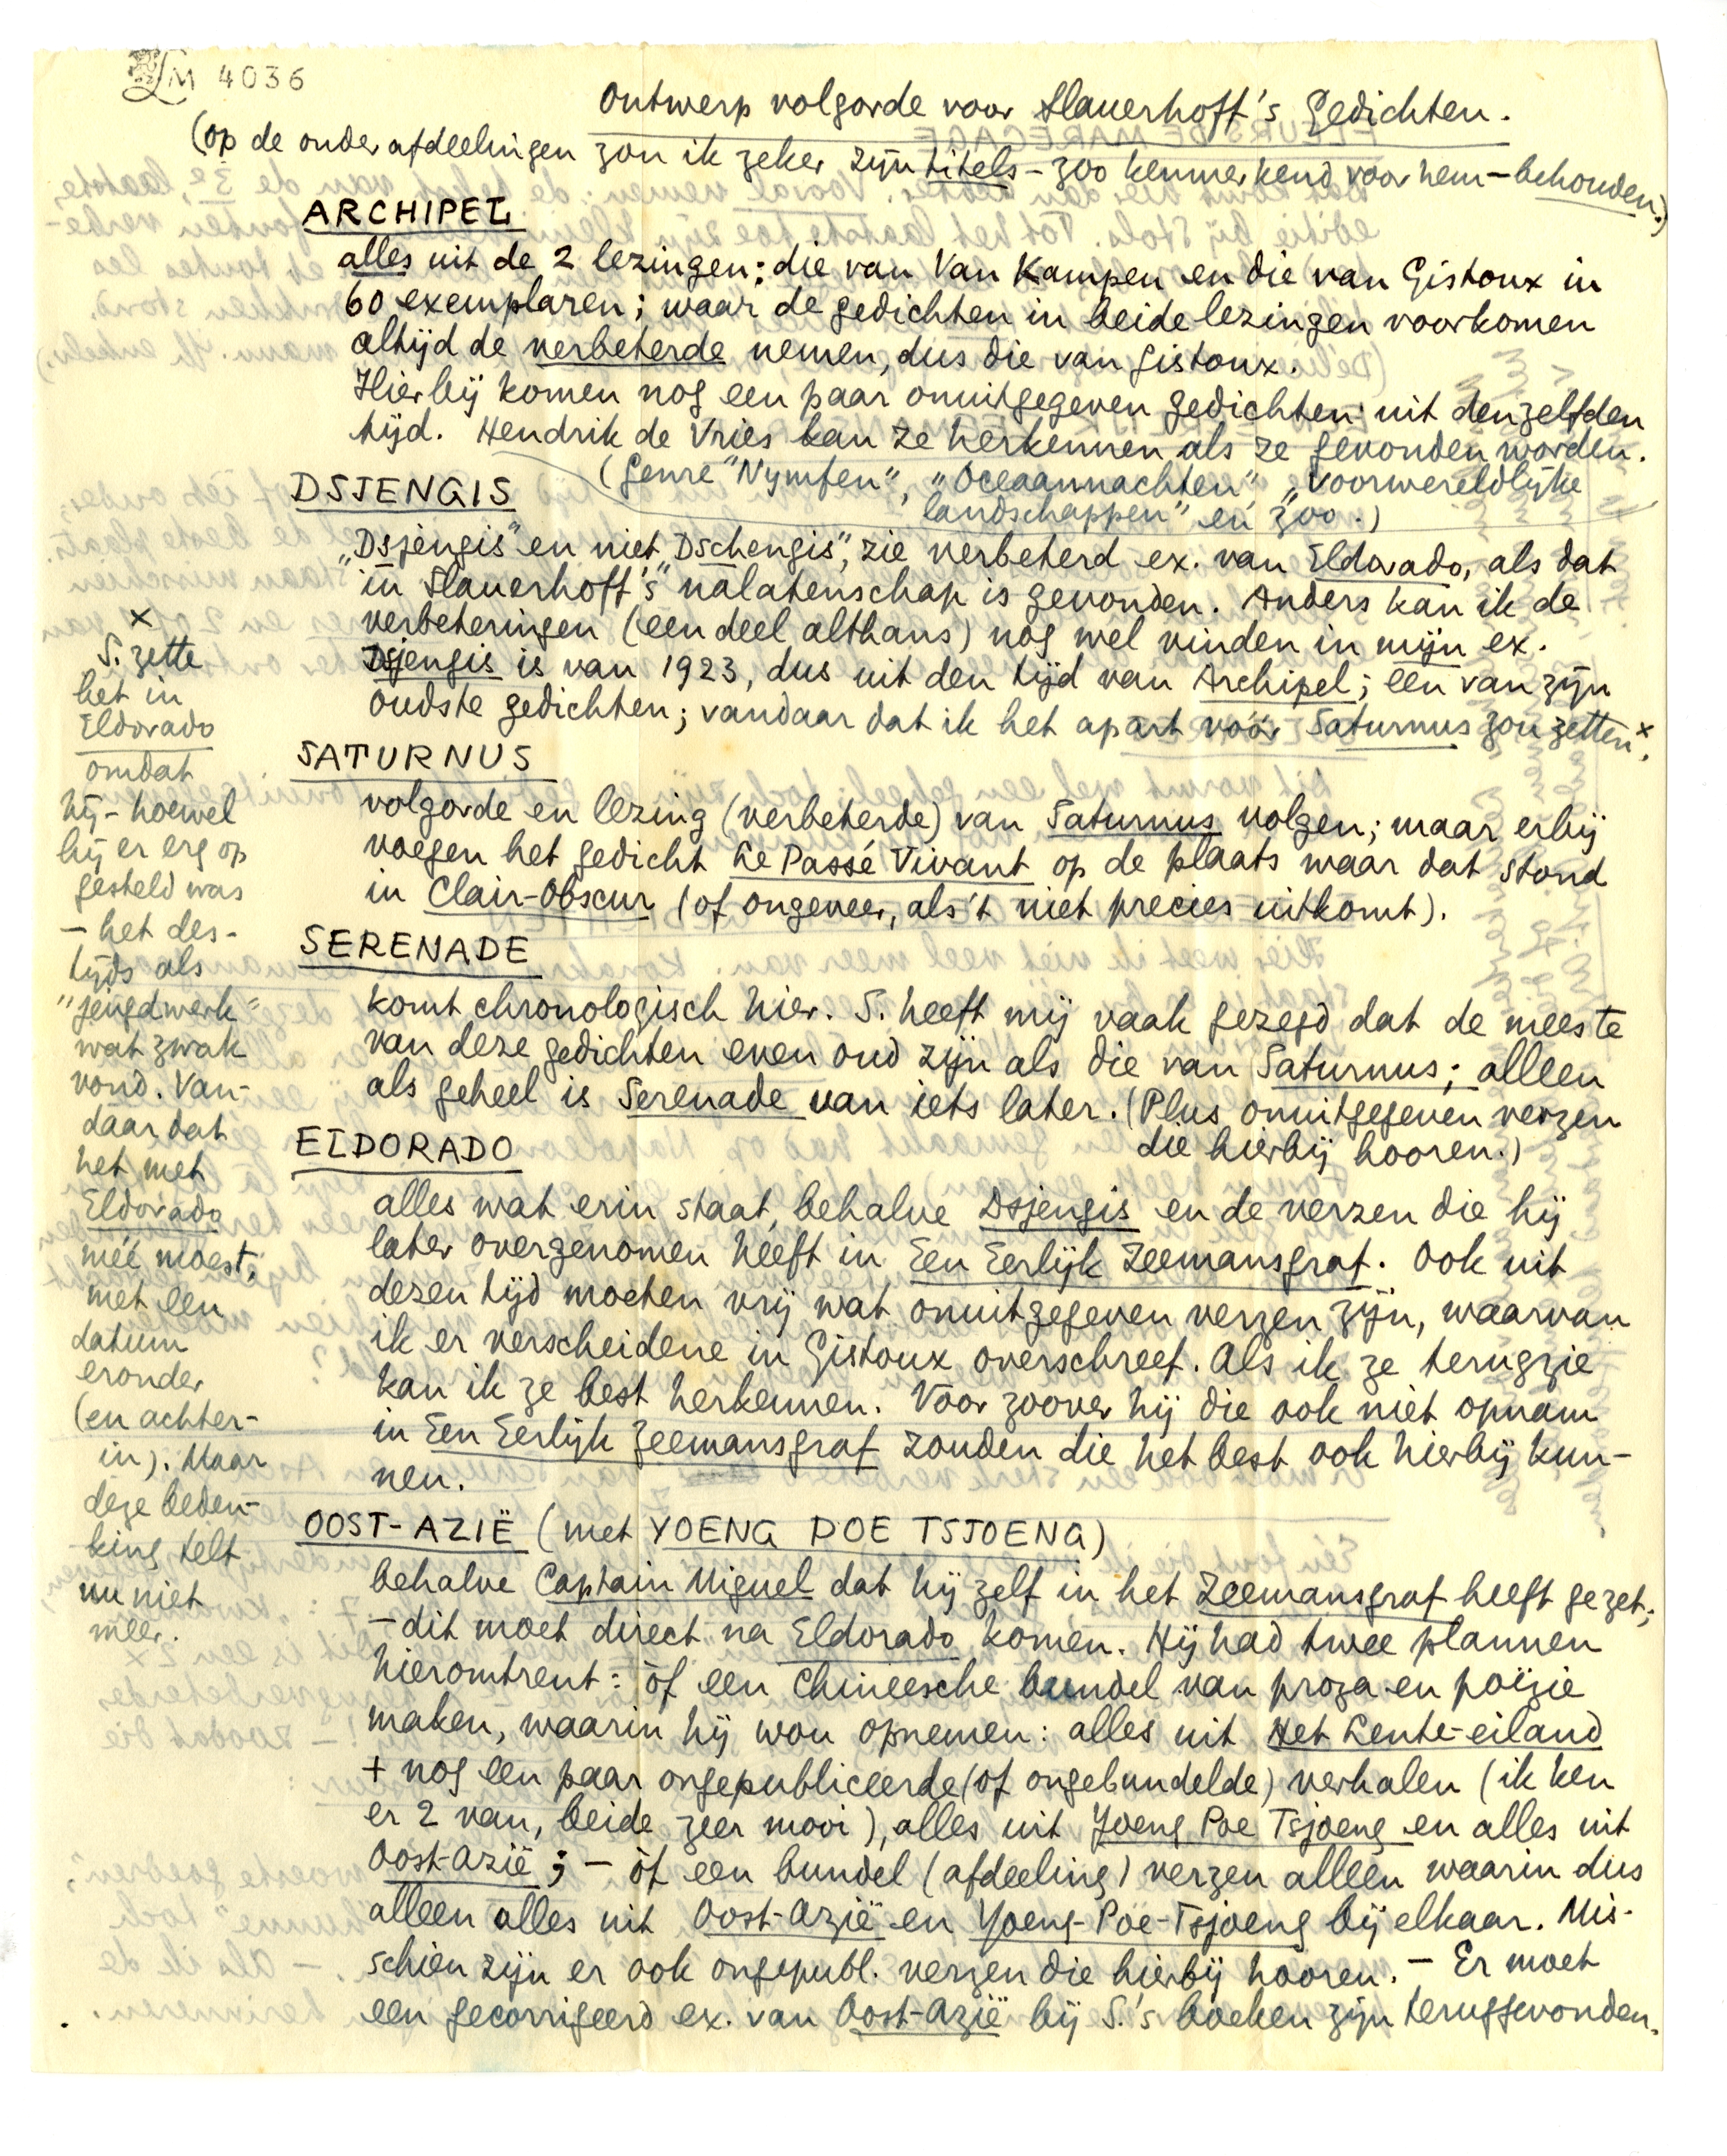 LM 4036
Ontwerp volgorde voor Slauerhoff's Gedichten.
(op de onderafdeelingen zou ik zeker zijn titels – zoo kenmerkend voor hem – behouden.)
ARCHIPEL
alles uit de 2 lezingen: die van Van Kampen en die van Gistoux in
60 exemplaren; waar de gedichten in beide lezingen voorkomen
altijd de verbeterde nemen, dus die van Gistoux.
Hierbij komen nog een paar onuitgegeven gedichten uit denzelfden
tijd. Hendrik de Vries kan ze herkennen als ze gevonden worden.
(Genre "Nymfen", "Oceaannachten", "Voorwereldlijke
landschappen" en zoo.)
DSJENGIS
„Dsjengis" en niet „Dschengis", zie verbeterd ex. van Eldorado, als dat
in Slauerhoff's nalatenschap is gevonden. Anders kan ik de
verbeteringen (een deel althans) nog wel vinden in mijn ex.
Dsjengis is van 1923, dus uit den tijd van Archipel; een van zijn
oudste gedichten; vandaar dat ik het apart vóór Saturnus zou zetten x.
SATURNUS
volgorde en lezing (verbeterde) van Saturnus volgen; maar erbij
voegen het gedicht Le Passé Vivant op de plaats waar dat stond
in Clair-Obscur (of ongeveer, als 't niet precies uitkomt).
SERENADE
komt chronologisch hier. S. heeft mij vaak gezegd dat de meeste
van deze gedichten even oud zijn als die van Saturnus; alleen
als geheel is Serenade van iets later. (Plus onuitgegeven verzen
die hierbij hooren.)
ELDORADO
alles wat erin staat, behalve Dsjengis en de verzen die hij
later overgenomen heeft in Een Eerlijk Zeemansgraf. Ook uit
dezen tijd moeten vrij wat onuitgegeven verzen zijn, waarvan
ik er verscheidene in Gistoux overschreef. Als ik ze terugzie
kan ik ze best herkennen. Voor zoover hij die ook niet opnam
in Een Eerlijk Zeemansgraf zouden die het best ook hierbij kun-
nen.
OOST-AZIË (met YOENG POE TSJOENG)
behalve Captain Miguel dat hij zelf in het Zeemansgraf heeft gezet;
– dit moet direct na Eldorado komen. Hij had twee plannen
hieromtrent: òf een Chineesche bundel van proza en poëzie
maken, waarin hij wou opnemen: alles uit Het Lente-eiland
+ nog een paar ongepubliceerde (of ongebundelde) verhalen (ik ken
er 2 van, beide zeer mooi), alles uit Yoeng Poe Tsjoeng en alles uit
Oost-Azië; – òf een bundel (afdeeling) verzen alleen waarin dus
alleen alles uit Oost-Azië en Yoeng-Poe-Tsjoeng bij elkaar. Mis-
schien zijn er ook ongepubl. verzen die hierbij hooren. – Er moet
een gecorrigeerd ex. van Oost-Azië bij S.'s boeken zijn teruggevonden.
x
S. zette
het in
Eldorado
omdat
hij – hoewel
hij er erg op
gesteld was
– het des-
tijds als
"jeugdwerk"
wat zwak
vond. Van-
daar dat
het met
Eldorado
méé moest,
met een
datum
eronder
(en achter-
in). Maar
deze beden-
king telt
nu niet
meer.